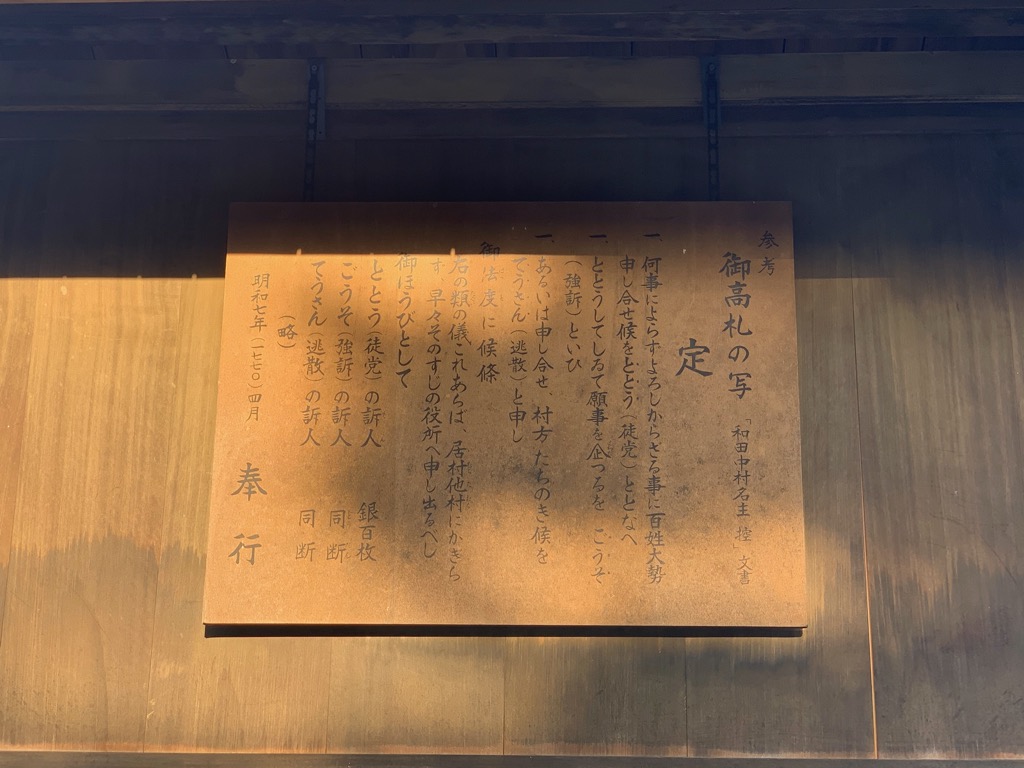 参考
御高札の写 「和田中村名主 控」文書
定
一、何事によらすよろしからざる事に百姓大勢
申し合せ候をととう(徒党)ととなへ
一、ととうしてしゐて願事を企つるを ごうそ
(強訴)といひ
一、あるいは申し合せ、村方 たちのき候を
てうさん(逃散)と申し
御法度に候條
右の類の儀これあらば、居村他村にかきら
す 早々そのすじの役所へ申し出るへし
御ほうびとして
ととう(徒党)の訴人 銀百枚
ごうそ(強訴)の訴人 同断
てうさん(逃散)の訴人 同断
(略)
明和七年(一七七〇)四月 奉行